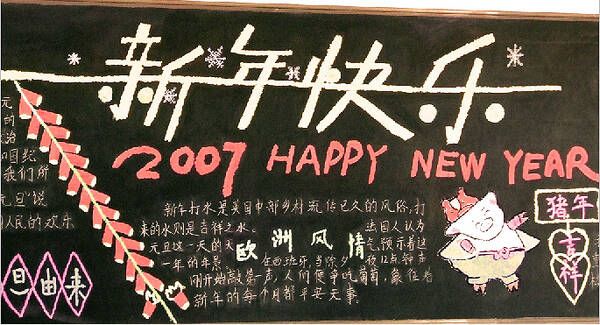 新年快乐
2007 HAPPY NEW YEAR
元
的
治
国纪
我们所
元旦"说
人民的欢乐
旦由来
新年打水是英国中部乡村流传已久的风俗,打
来的水则是吉祥之水。
元旦这一天的天
一年的年景
欧洲风情
法国人认为
气预示着这
在西班牙,当除夕夜12点钟声
刚开始敲第一声,人们便争吃葡萄,象征着
新年的每个月都平安无事。
猪年
吉祥